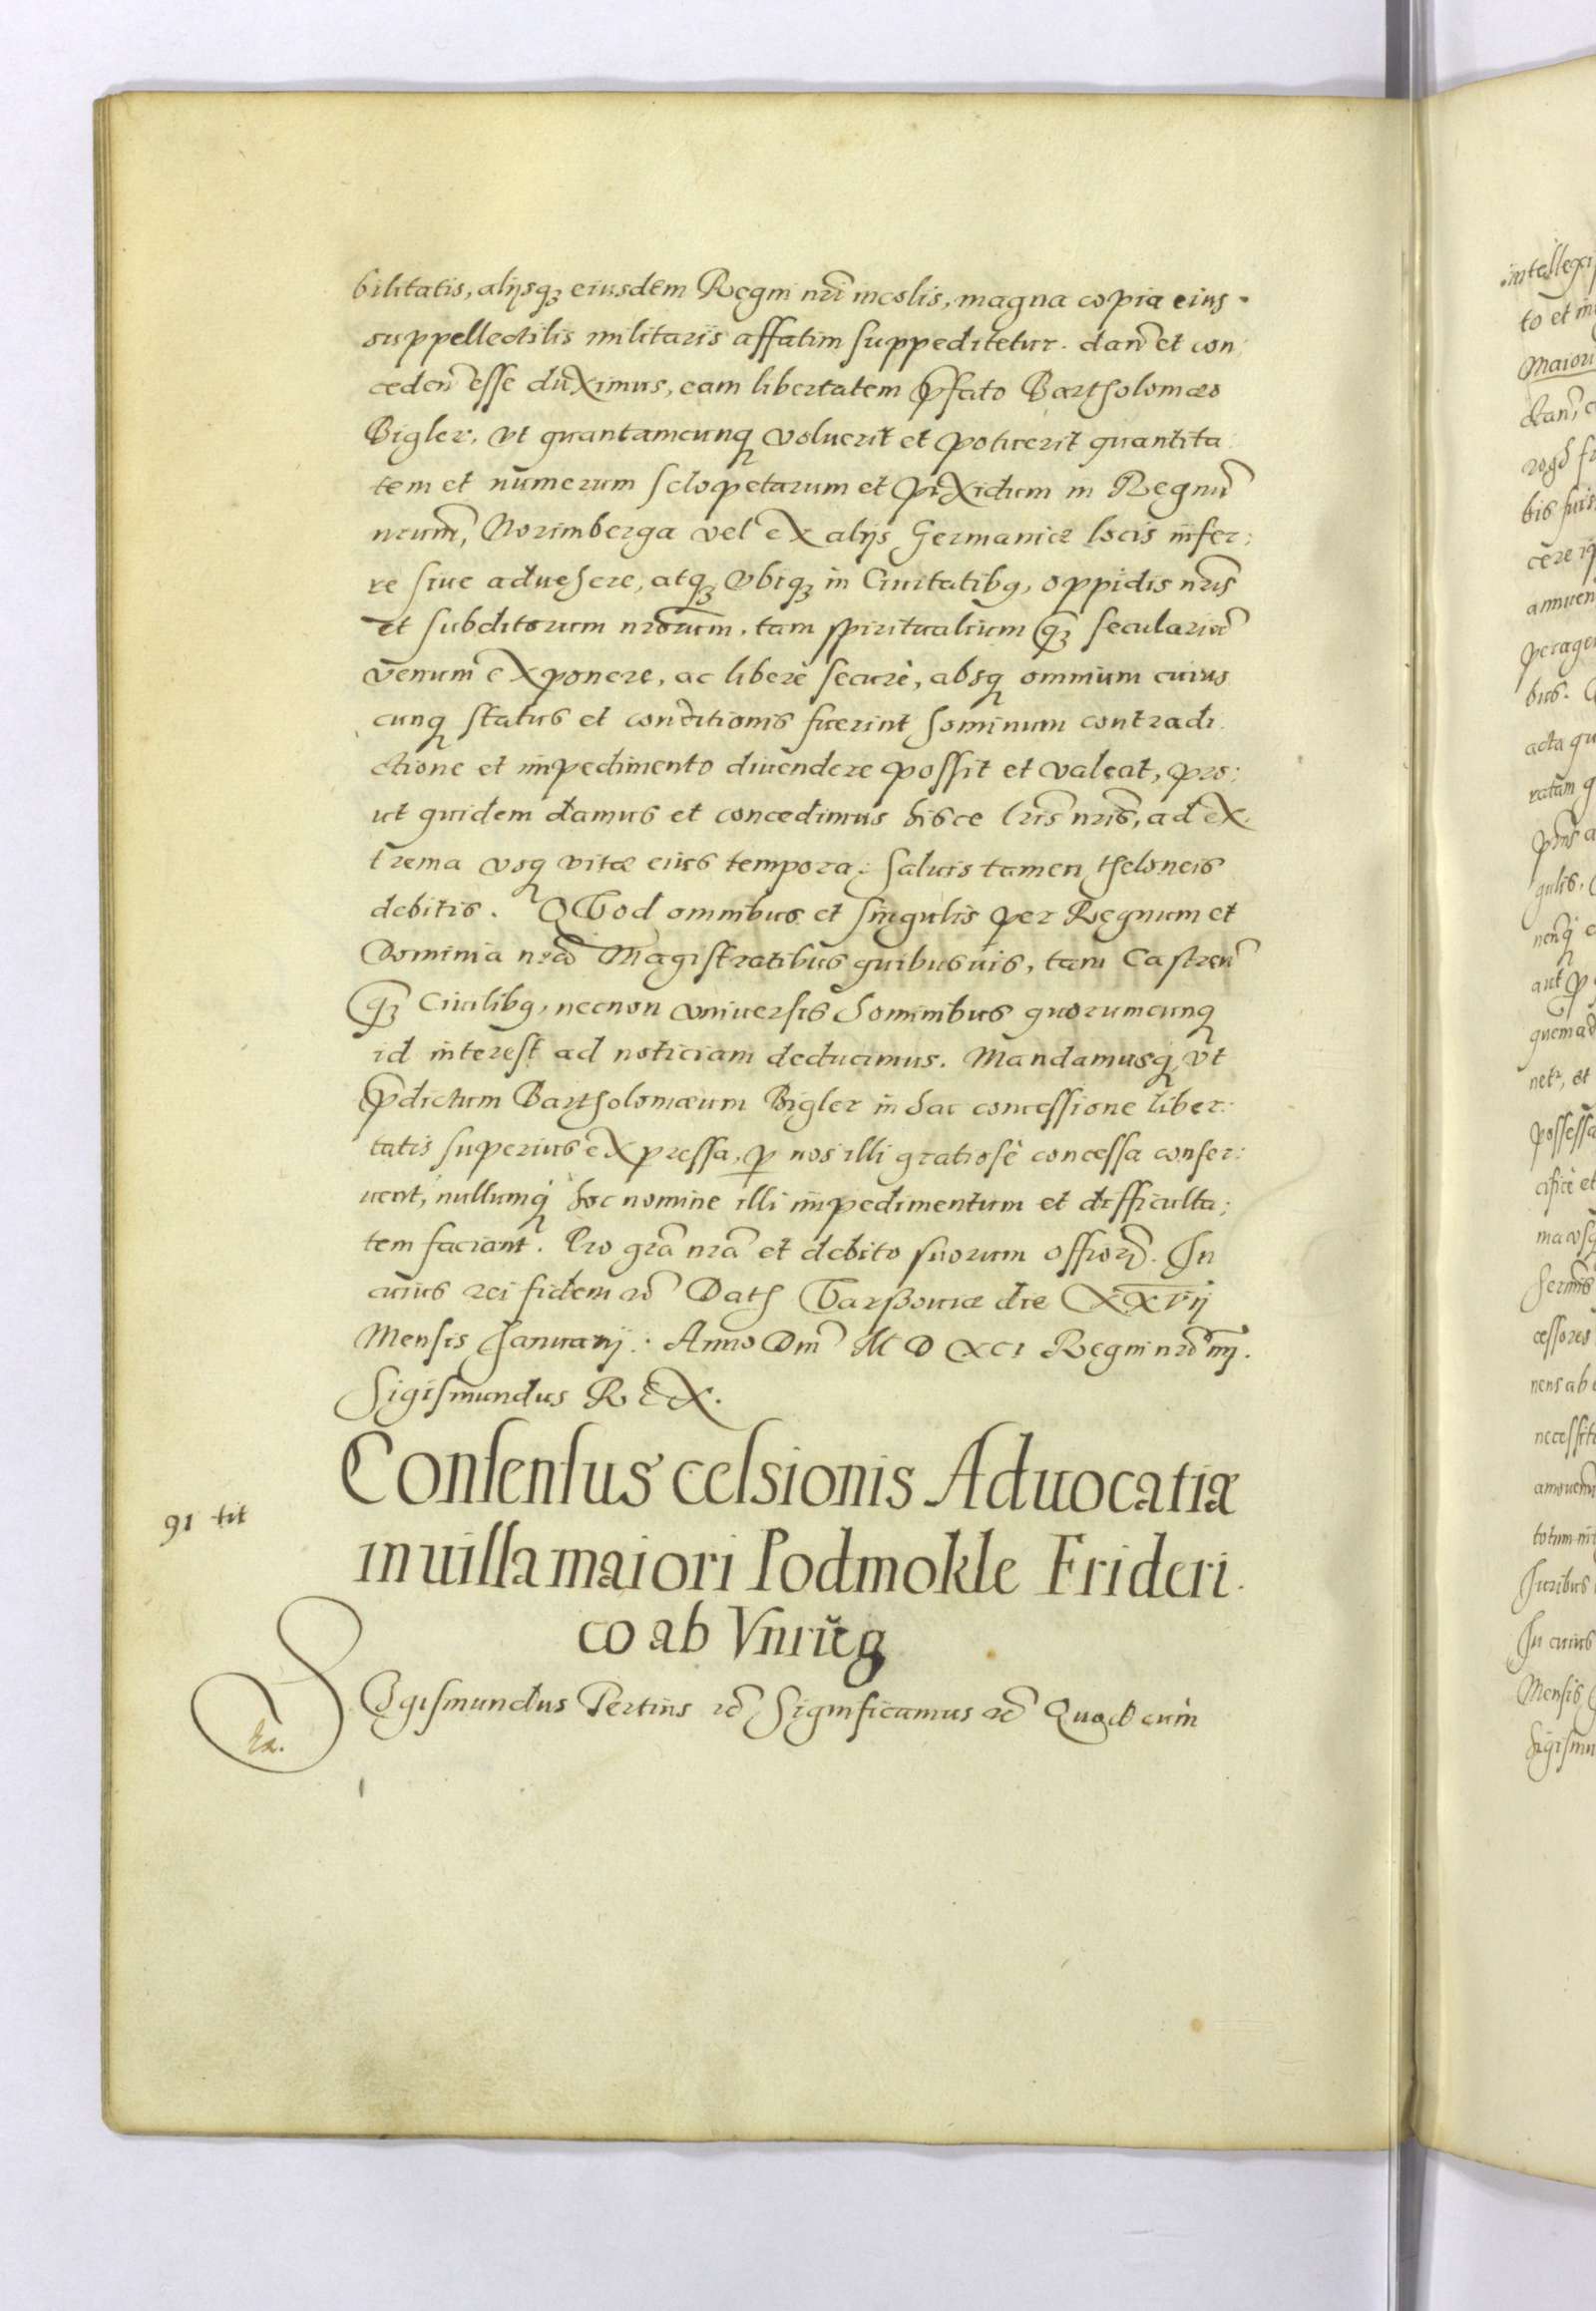 bilitatis, alijsq3 eiusdem Regni nr̃i incolis, magna copia eius
suppellectilis militaris affatim suppeditetur. dan̄ et con
ceden̄ esse duximus, eam libertatem p̃fato Bartholomæo
Bigler, vt quantamcunq voluerit et potuerit quantita
tem et numerum sclopetarum et pixidum in Regnũ
nrũm, Norimberga vel ex alijs Germaniæ locis infer:
re siue aduehere, atq3 vbiq3 in Ciuitatibg, oppidis nr̃is
et subditorum nrõrum, tam spiritualium q̃3 seculariũ
venum exponere, ac liberè securè, absq omnium cuius
cunq status et conditionis fuerint hominum contradi
ctione et impedimento diuendere possit et valeat, pro:
ut quidem damus et concedimus hisce lr̃is nr̃is, ad ex
trema vsq vitæ eius tempora: saluis tamen theloneis
debitis. QVod omnibus et singulis per Regnum et
Dominia nrã Magistratibus quibusuis, tam Castreñ
q̃3 Ciuilibg, necnon vniuersis hominibus quorumcunq
id interest ad noticiam deducimus. Mandamusq, vt
p̃dictum Bartholomæum Bigler in hac concessione liber:
tatis superius expressa, p nos illi gratiosè concessa conser:
uent, nullumq hoc nomine illi impedimentum et difficulta:
tem faciant. Pro grã nrã et debito suorum offiorũ. In
cuius rei fidem rc̃ Dath Varßouiæ die XXVij
Mensis Januarij. Anno Dm̃ M D XCI Regni nrĩ iiij.
Sigismundus REX.
91 tit
Consensus celsionis Aduocatiæ
in uilla maiori Podmokle Frideri
co ab Vnrŭg
SIgismundus Tertius rc̃ Significamus rc̃ Quod cum